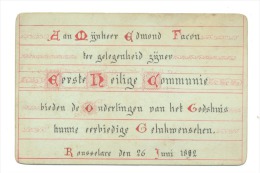 Aan Mijnheer Edmond Facon
ter gelegenheid zijner
Eerste Heilige Communie
bieden de Onderlingen van het Godshuis
hunne eerbiedige Gelukwenschen.
Rousselare den 26 Juni 1892